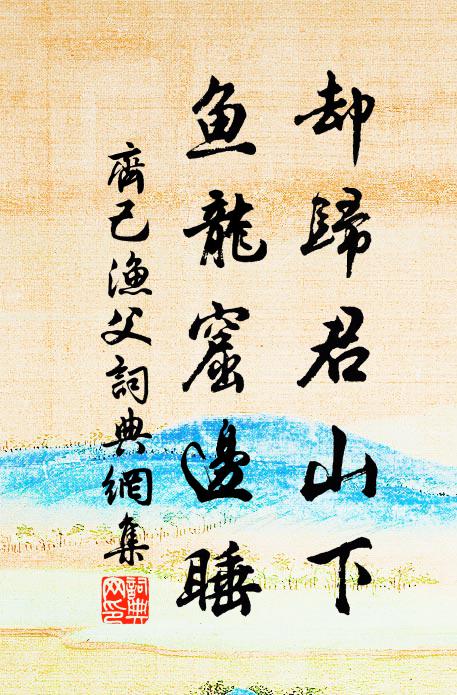 却歸君山下
魚龍窟邊睡
齊己漁父詞典網集
詞典網印